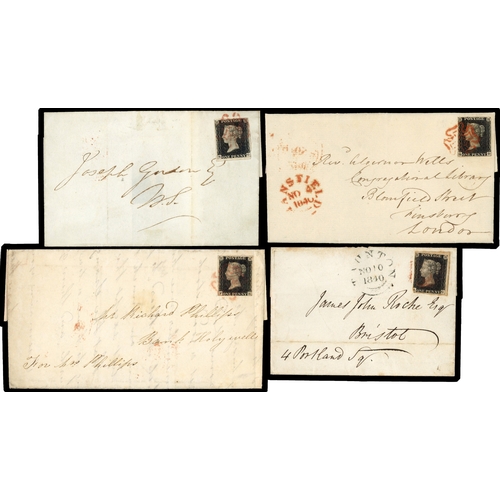 POSTAGE
ONE PENNY
Joseph Gordon Esqr
W.S.
POSTAGE
ONE PENNY
MANSFIELD
NO
1840
Revd. Algernon Wells
Congregational Library
Blomfield Street
Finsbury
London
POSTAGE
ONE PENNY
Mr Richard Phillips
Bank Holywell
For Mr Phillips
POSTAGE
ONE PENNY
TAUNTON
NO 10
1840
James John Roche Esq
Bristol
4 Portland Sq.